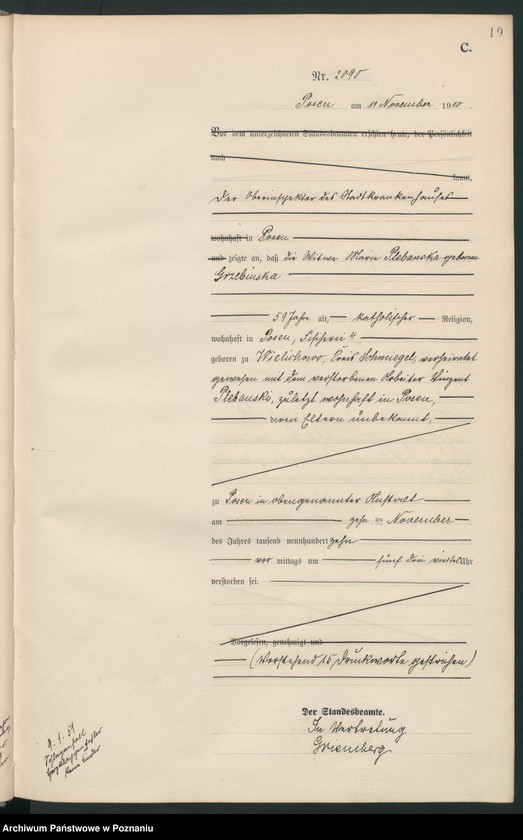 19
C.
Nr. 2090
Posen am 11 November 1910.
Vor dem unterzeichneten Standesbeamten erschien heute, der Persönlichkeit
nach
kannt,
der Oberinspektor des Stadtkrankenhauses
wohnhaft in Posen
und zeigte an, daß die Witwe Marie Plebanska geborene
Grzebinska
59 Jahre alt, katholischer Religion,
wohnhaft in Posen, Fischerei 4
geboren zu Wielichowo, Kreis Schmiegel, verheiratet
gewesen mit dem verstorbenen Arbeiter Vinzent
Plebanski, zuletzt wohnhaft in Posen,
deren Eltern unbekannt,
zu Posen in obengenannter Anstalt
am zehn ten November
des Jahres tausend neunhundert zehn
vor mittags um fünf drei viertel Uhr
verstorben sei.
Vorgelesen, genehmigt und
(Vorstehend 15 Druckworte gestrichen)
Der Standesbeamte.
In Vertretung
9. 1. 51
Archiwum Państwowe w Poznaniu